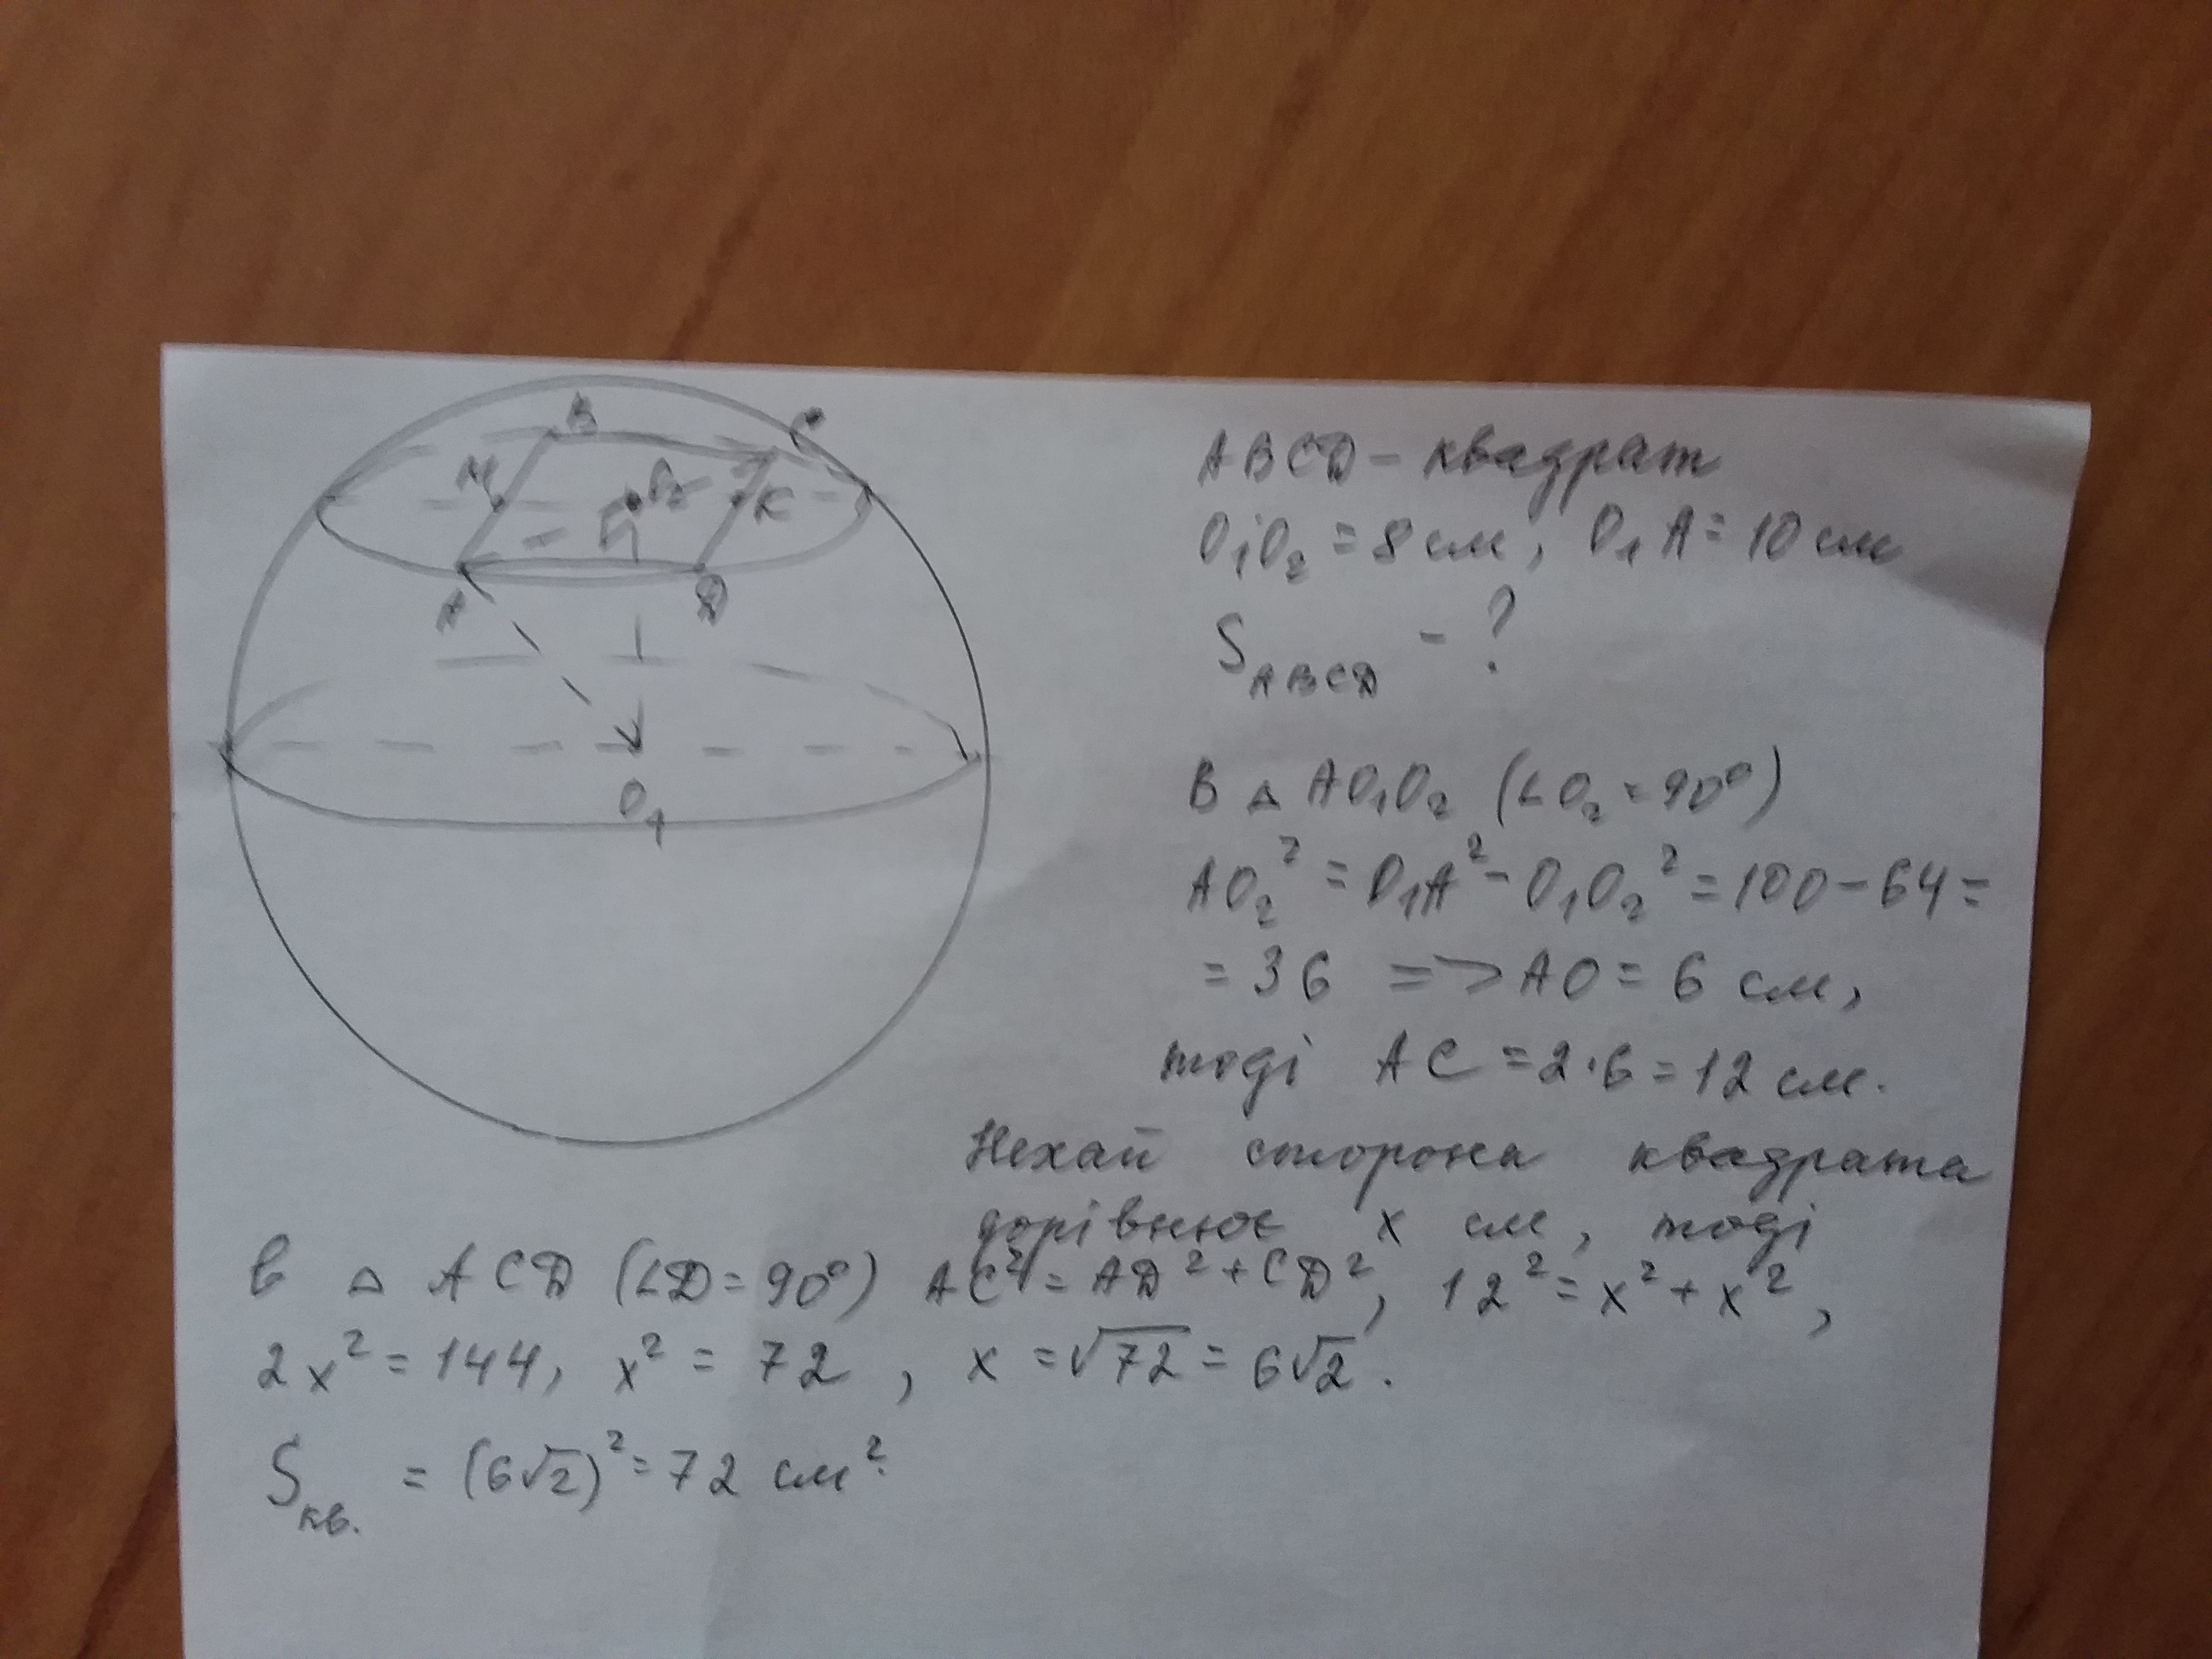 B
C
M
O₂
K
A
D
O₁
ABCD – квадрат
O₁O₂ = 8 см, O₁A = 10 см
S_ABCD – ?
В △ AO₁O₂ (∠O₂ = 90°)
AO₂² = O₁A² – O₁O₂² = 100 – 64 =
= 36 => AO = 6 см,
тоді AC = 2·6 = 12 см.
Нехай сторона квадрата
дорівнює x см, тоді
в △ ACD (∠D = 90°) AC² = AD² + CD², 12² = x² + x²,
2x² = 144, x² = 72, x = √72 = 6√2.
S_кв. = (6√2)² = 72 см².